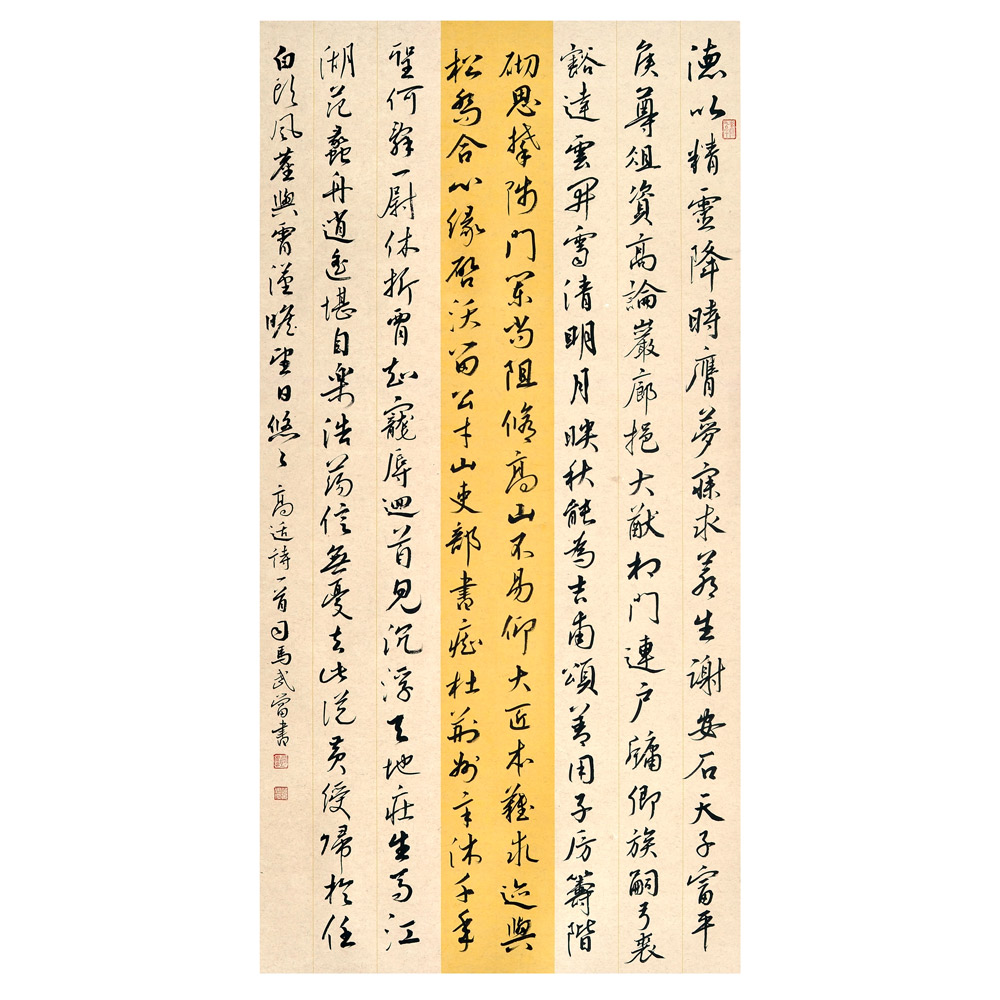 德以精靈降時膺夢寐求蒼生謝安石天子富平
侯尊俎資高論巖廊挹大猷相門連戶牖卿族嗣弓裘
豁達雲開霽清明月映秋能為吉甫頌善用子房籌階
砌思攀陟門闌尚阻脩高山不易仰大匠本難求迹與
松喬合心緣啓沃留公才山吏部書癖杜荊州幸沐千年
聖何辭一尉休折霄知寵辱迴首見沉浮天地莊生馬江
湖范蠡舟逍遙堪自樂浩蕩信無憂去此從黃綬歸於任
白頭風塵與霄漢瞻望日悠々 高適詩一首司馬武當書